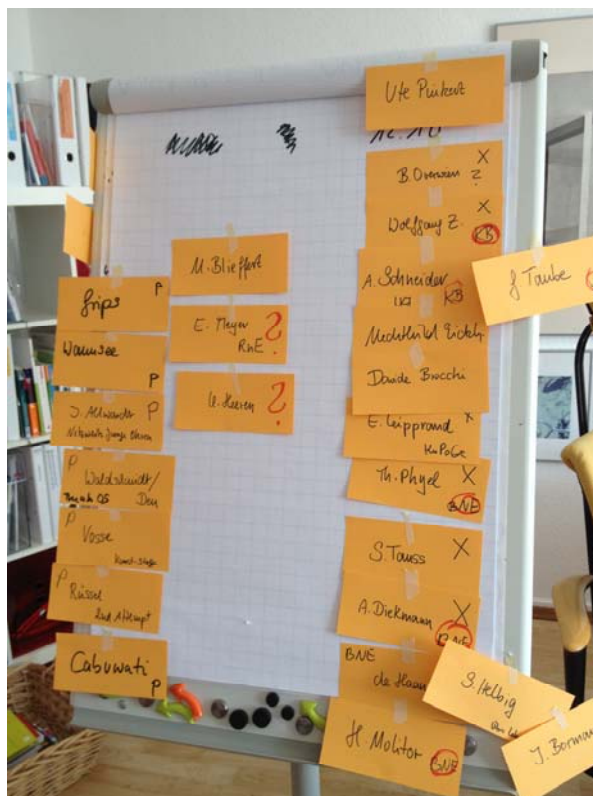 Ute Pinkert
12.10
B. Overwien X
?
Wolfgang Z. X
KB
A. Schneider
KB
J Taube
Mechthild Eickh
Davide Brocchi
E. Leipprand X
KuPoGe
Th. Phyel X
BNE
S. Tauss X
A. Diekmann X
BNE
BNE
de Haan
S. Helbig
J. Borman
H. Molitor
BNE
M. Blieffert
E. Meyer ?
RnE
U. Heeren ?
Grips P
Wannsee
P
P
Netzwerk Junge Ohren
P Waldstandt/
Den
P Vosse
Kunst-Stoffe
P Rüssel
2nd Attempt
Cabuwati
P